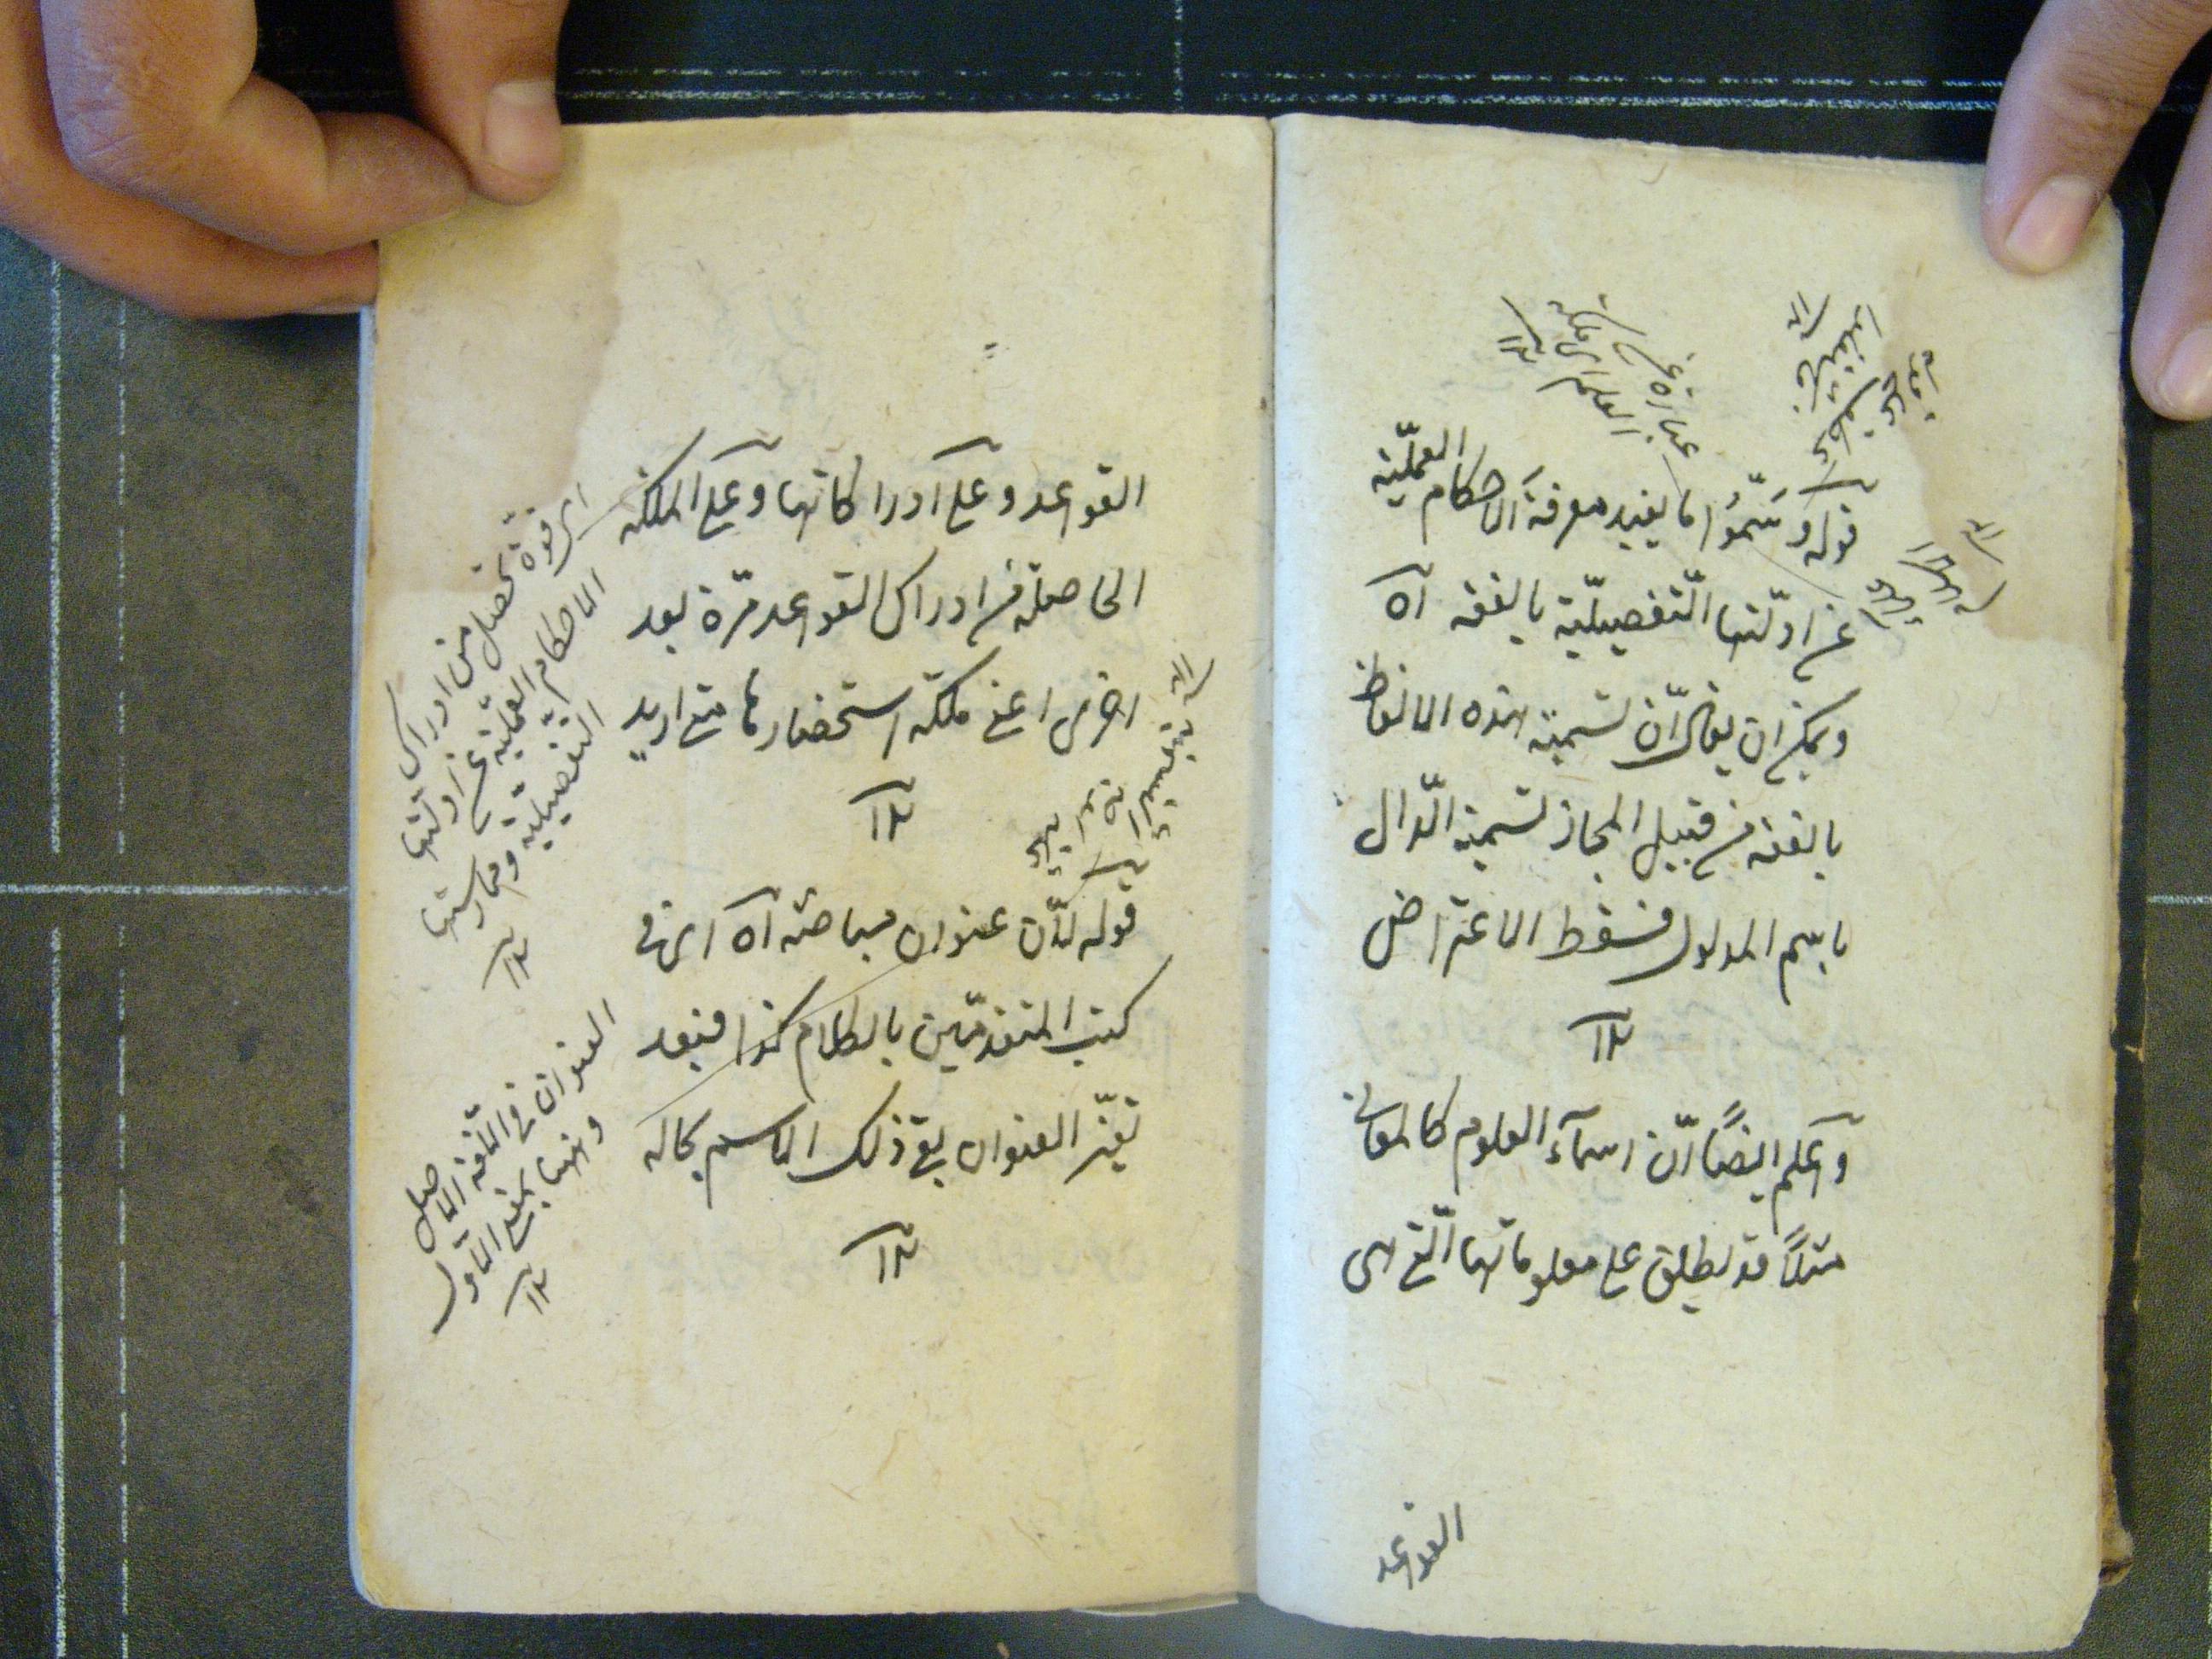 عبارة عن
العلم اى ملكة
١٢
قوله وسَمّوا ما يفيد معرفة الاحكام العمليّة
عن ادلّتها التّفصيليّة بالفقه آه
ويمكن ان يقال انّ تسمية هذه الالفاظ
بالفقه من قبيل المجاز تسمية الدّال
باسم المدلول فسقط الاعتراض
١٢
واعلم ايضًا انّ اسمآء العلوم كالمعانى
مثلًا قد يطلق على معلوماتها الّتى هى
القواعد
القواعد وعلى ادراكاتها وعلى الملكه
الحاصلة من ادراك القواعد مرّة بعد
اخرى اعنى ملكة استحضارها متى اريد
١٢
قوله لانّ عنوان مباحثه آه اى فى
كتب المتقدّمين بالكلام كذا فبعد
تغيّر العنوان بقى ذلك الاسم بحاله
١٢
اى قوّة تحصل من ادراك
الاحكام العمليّة عن ادلّتها
التفصيليّة وممارستها
١٢
العنوان فى اللغة الاصل
وههنا بمعنى الاوّل
١٢